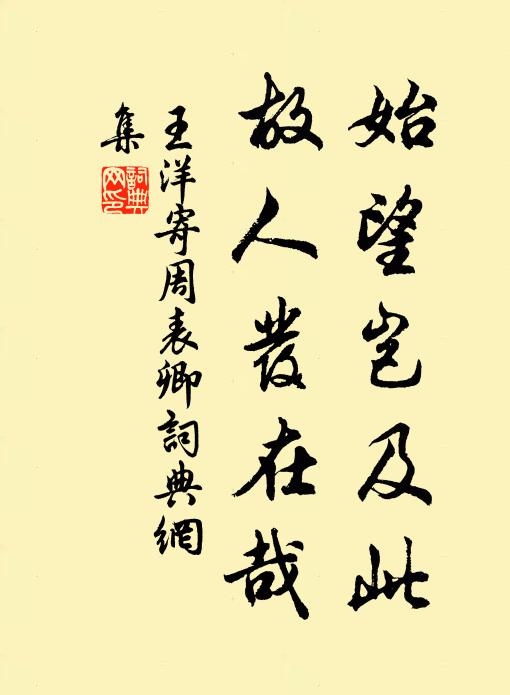 始望豈及此
故人叢在哉
王洋寄周表卿詞典網
集
詞典
网印